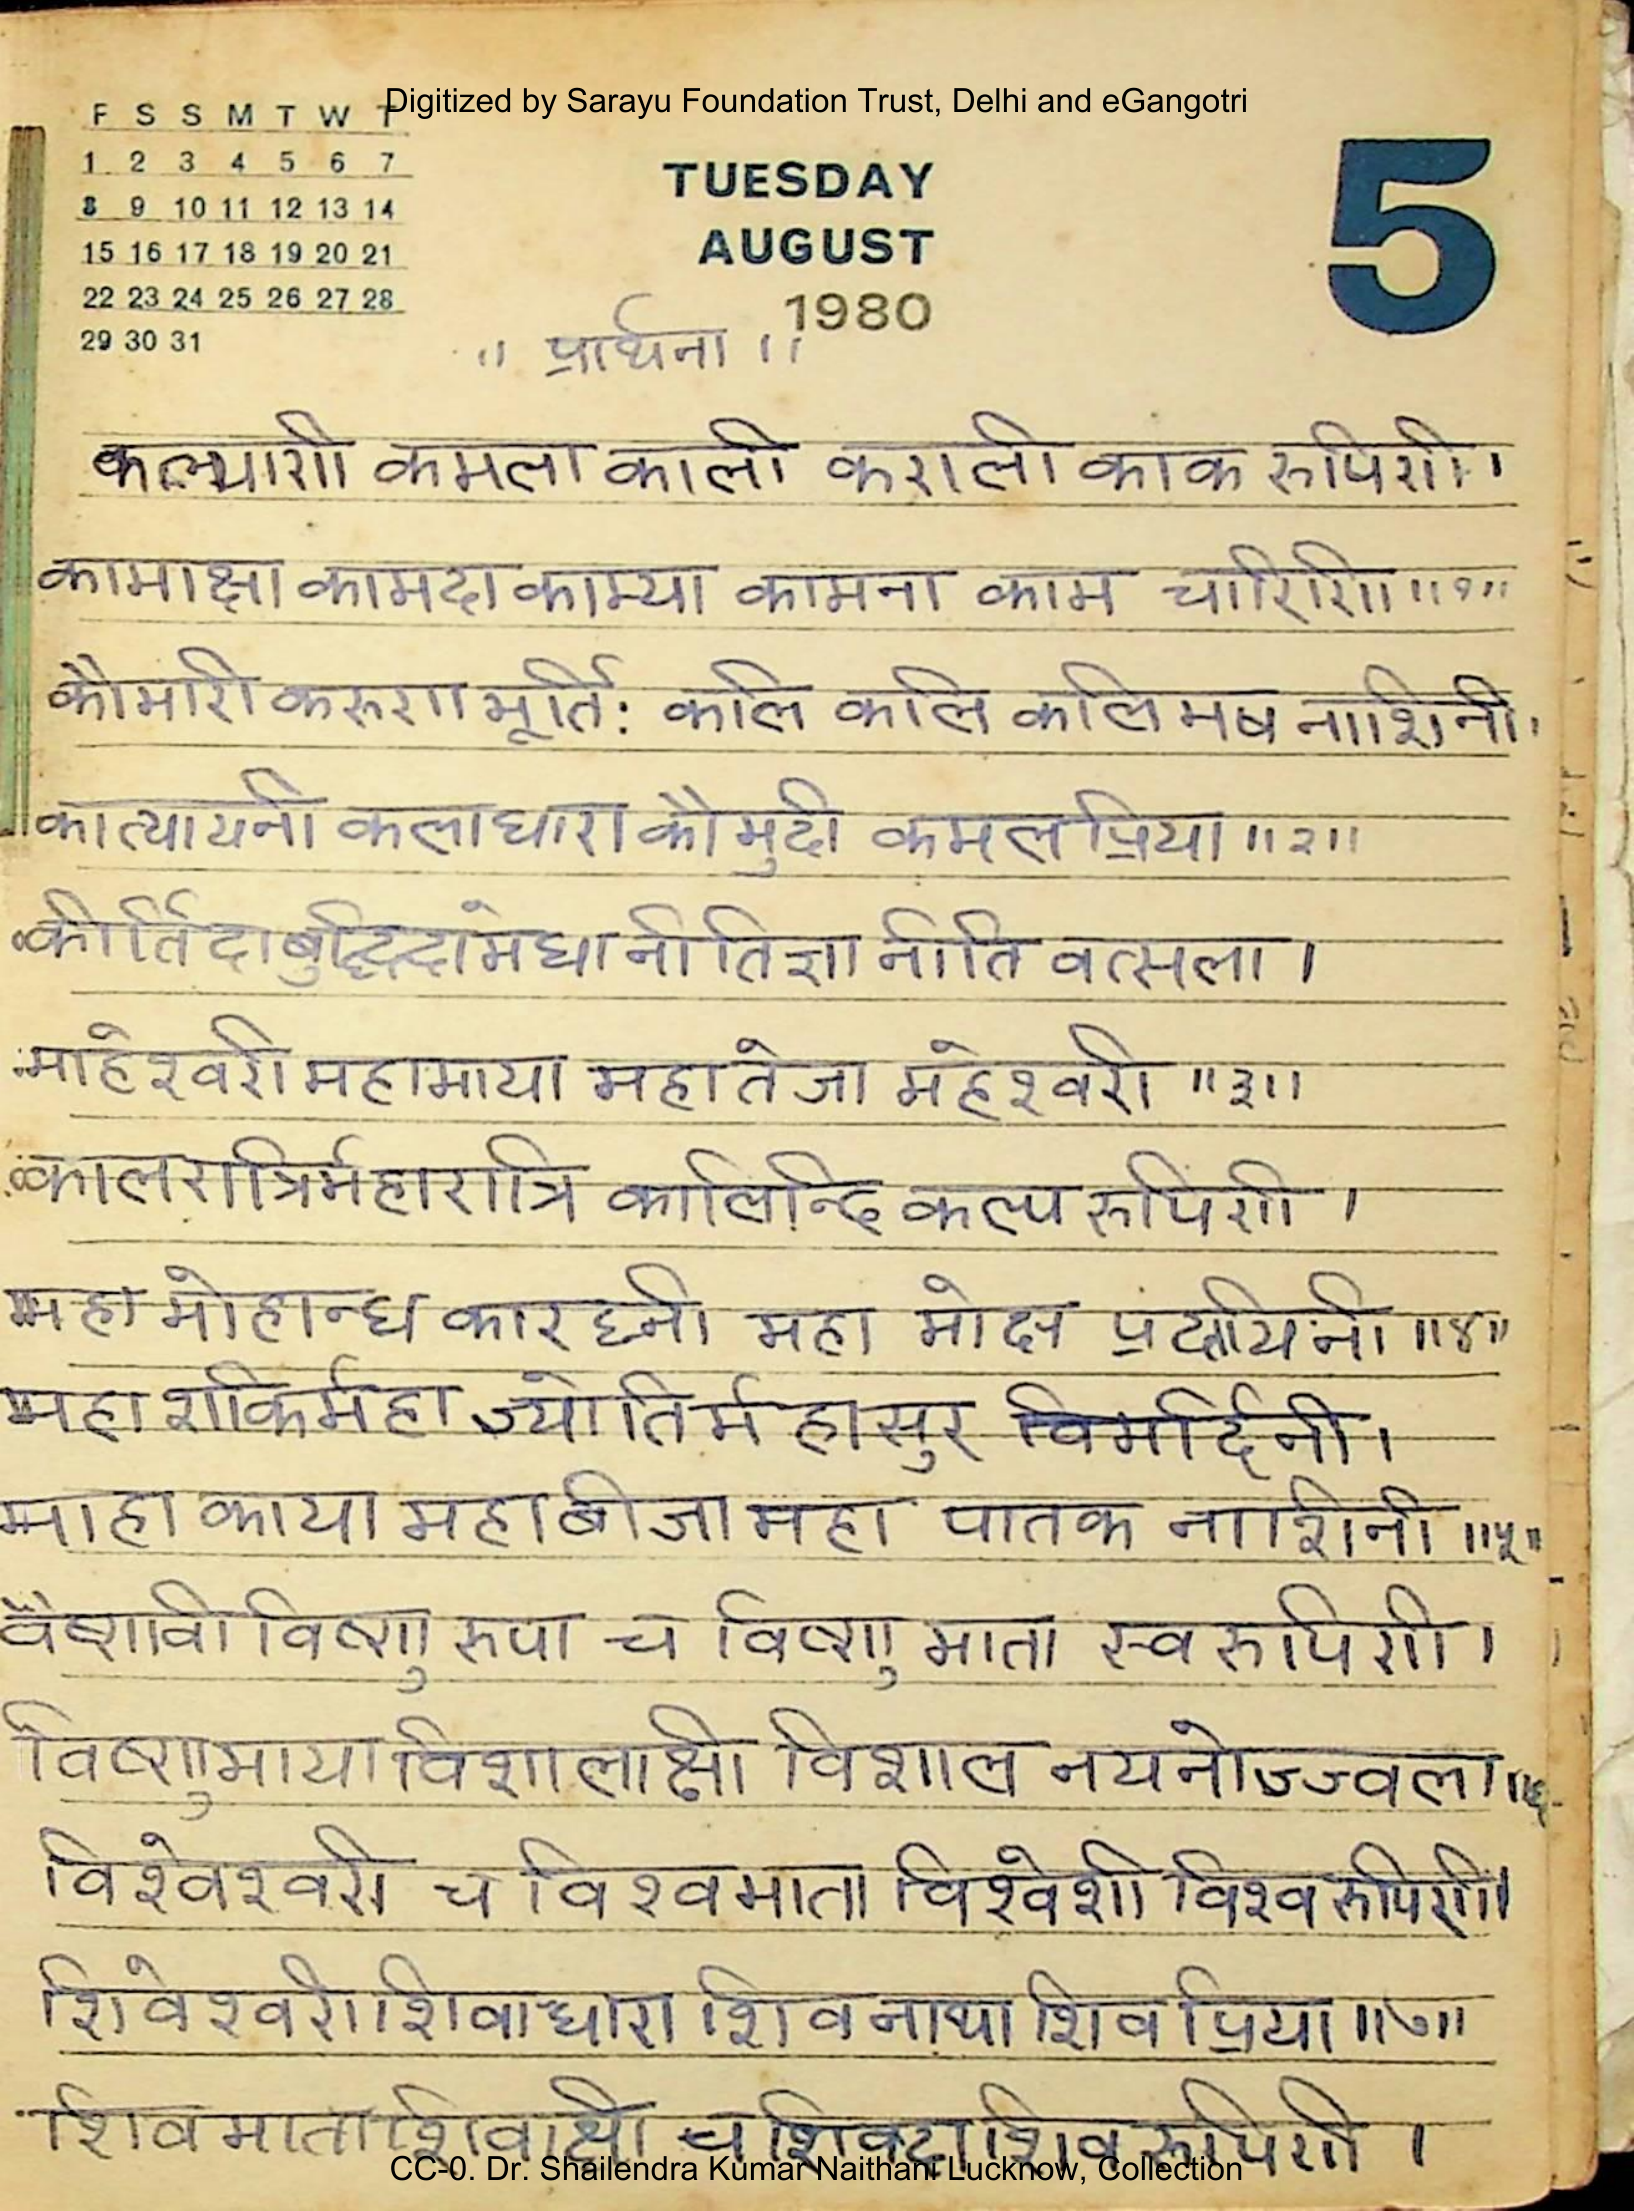 Digitized by Sarayu Foundation Trust, Delhi and eGangotri
F S S M T W T
1 2 3 4 5 6 7
8 9 10 11 12 13 14
15 16 17 18 19 20 21
22 23 24 25 26 27 28
29 30 31
TUESDAY
AUGUST
1980
5
॥ प्रार्थना ॥
कल्याणी कमला काली कराली काक रुपिणी।
कामाक्षा कामदा काम्या कामना काम चारिणी ॥१॥
कौमारी करुणा मूर्ति: कलि कलि कलि मष नाशिनी।
कात्यायनी कलाधारा कौमुदी कमल प्रिया ॥२॥
कीर्तिदा बुद्धिदा मेधा नीतिज्ञा नीति वत्सला ।
माहेश्वरी महामाया महा तेजा महेश्वरी ॥३॥
कालरात्रिर्महारात्रि कालिन्दि कल्प रुपिणी ।
महा मोहान्ध कारघ्नी महा मोक्ष प्रदायिनी ॥४॥
महा शक्तिर्महा ज्योतिर्म हासुर विमर्दिनी।
माहा काया महाबीजा महा पातक नाशिनी ॥५॥
वैष्णवी विष्णु रुपा च विष्णु माता स्व रुपिणी ।
विष्णुमाया विशालाक्षी विशाल नयनोज्ज्वला ॥६
विश्वेश्वरी च विश्वमाता विश्वेशी विश्व रुपिणी।
शिवेश्वरी शिवाधारा शिव नाथा शिव प्रिया ॥७॥
शिव माता शिवाक्षी च शिवदा शिव रुपिणी ।
CC-0. Dr. Shailendra Kumar Naithani Lucknow, Collection